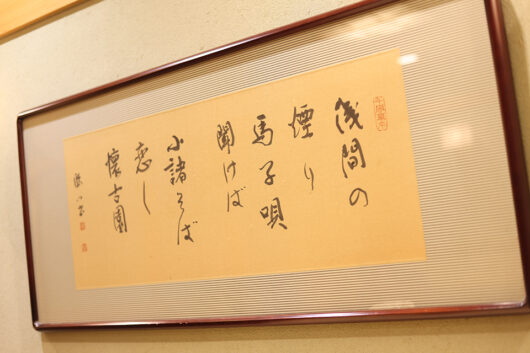 浅間の
煙り
馬子唄
聞けば
小諸そば
恋し
懐古園